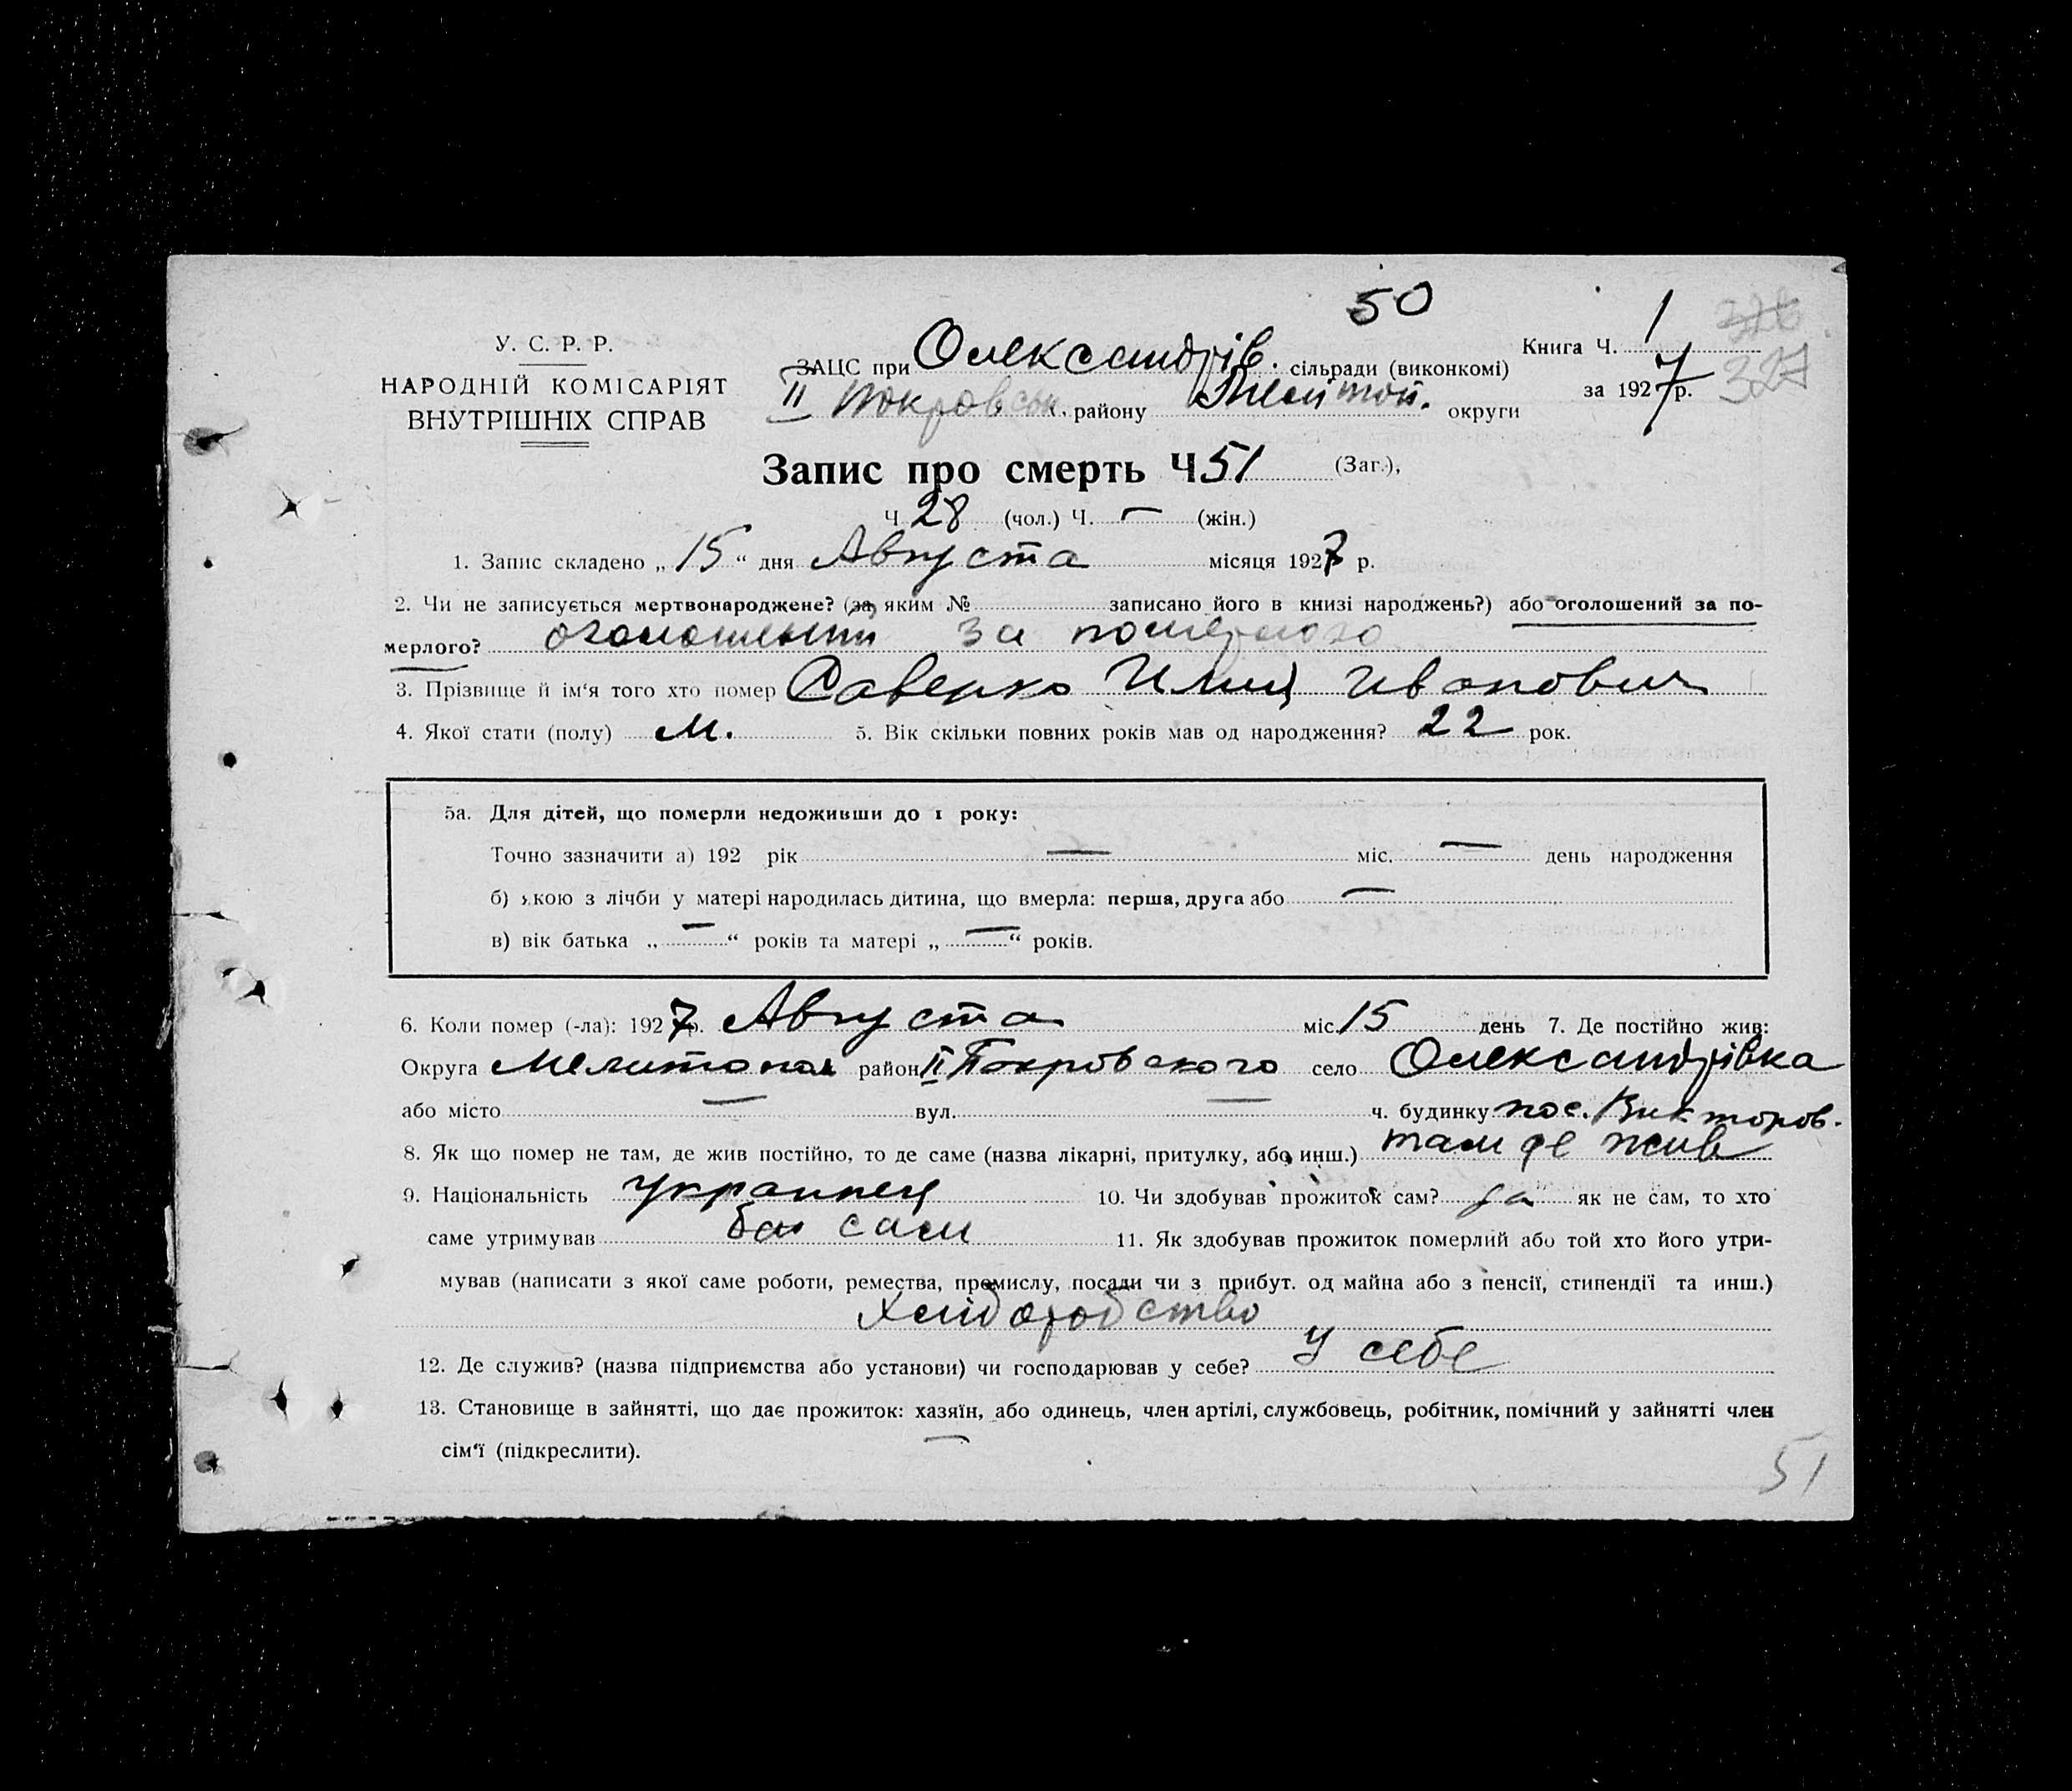 50
У. С. Р. Р.
НАРОДНІЙ КОМІСАРІЯТ
ВНУТРІШНІХ СПРАВ
ЗАЦС при Олександрів. сільради (виконкомі)
II Покровськ. району Мелітоп. округи
Книга Ч. 1
за 1927 р.
326
327
Запис про смерть Ч 51 (Заг.),
Ч 28 (чол.) Ч. — (жін.)
1. Запис складено „ 15 “ дня Августа місяця 1927 р.
2. Чи не записується мертвонароджене? (за яким № записано його в книзі народжень?) або оголошений за по-
мерлого? оголошений за померлого
3. Прізвище й ім'я того хто помер Саверко Иванович
4. Якої стати (полу) М. 5. Вік скільки повних років мав од народження? 22 рок.
5а. Для дітей, що померли недоживши до 1 року:
Точно зазначити а) 192 рік — міс. — день народження
б) якою з лічби у матері народилась дитина, що вмерла: перша, друга або —
в) вік батька „ — “ років та матері „ — “ років.
6. Коли помер (-ла): 1927 р. Августа міс. 15 день 7. Де постійно жив:
Округа Мелитопол район II Покровского село Олександрівка
або місто — вул. — ч. будинку пос. Викторов.
8. Як що помер не там, де жив постійно, то де саме (назва лікарні, притулку, або инш.) там де жив
9. Національність украинец 10. Чи здобував прожиток сам? да як не сам, то хто
саме утримував сам
11. Як здобував прожиток померлий або той хто його утри-
мував (написати з якої саме роботи, ремества, промислу, посади чи з прибут. од майна або з пенсії, стипендії та инш.)
Хліборобство
12. Де служив? (назва підприємства або установи) чи господарював у себе? У себе
13. Становище в зайнятті, що дає прожиток: хазяїн, або одинець, член артілі, службовець, робітник, помічний у зайнятті член
сім'ї (підкреслити).
51